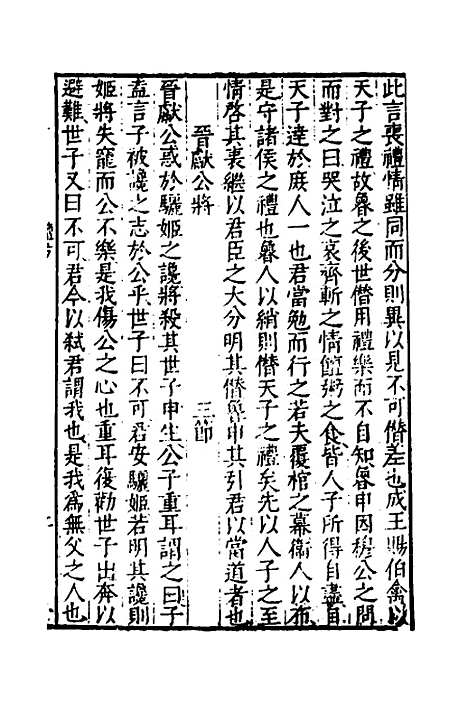 此言喪禮情雖同而分則異以見不可僭差也成王賜伯禽以
天子之禮故魯之後世僭用禮樂而不自知魯申因穆公之問
而對之曰哭泣之哀齊斬之情饘粥之食皆人子所得自盡自
天子達於庶人一也君當勉而行之若夫覆棺之幕衛人以布
是守諸侯之禮也魯人以綃則僭天子之禮矣先以人子之至
情啓其衷繼以君臣之大分明其僭魯申其引君以當道者也
晉獻公將 三節
晉獻公惑於驪姬之讒將殺其世子申生公子重耳謂之曰子
盍言子被讒之志於公乎世子曰不可君安驪姬若明其讒則
姬將失寵而公不樂是我傷公之心也重耳復勸世子出奔以
避難世子又曰不可君今以弒君謂我也是我爲無父之人也